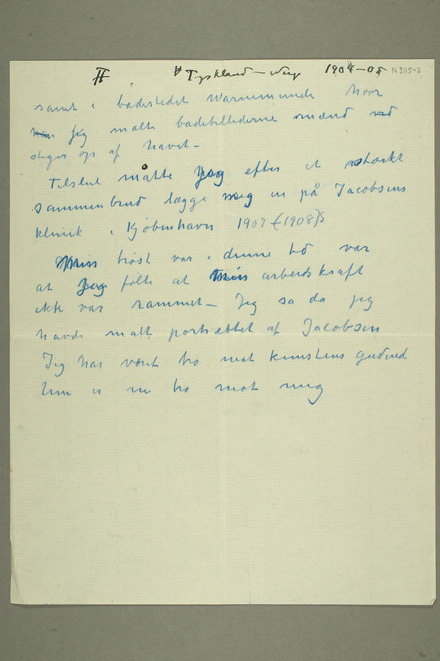 II. Tyskland – Weg 1904–08 N 3115-2
samt i badestedet Warnemunde hvor
jeg malte badebillederne mænd
steges op af havet –
Tilslut måtte Jeg efter et stærkt
sammenbrud lægge meg in på Jacobsens
klinik i Kjøbenhavn 1907 (1908)
Min trøst var i denne tid var
at Jeg følte at Min arbeidskraft
ikke var rammet – Jeg sa da jeg
havde malt portrættet af Jacobsen
Jeg har vært tro mot kunstens gudind
Hun er nu tro mot meg